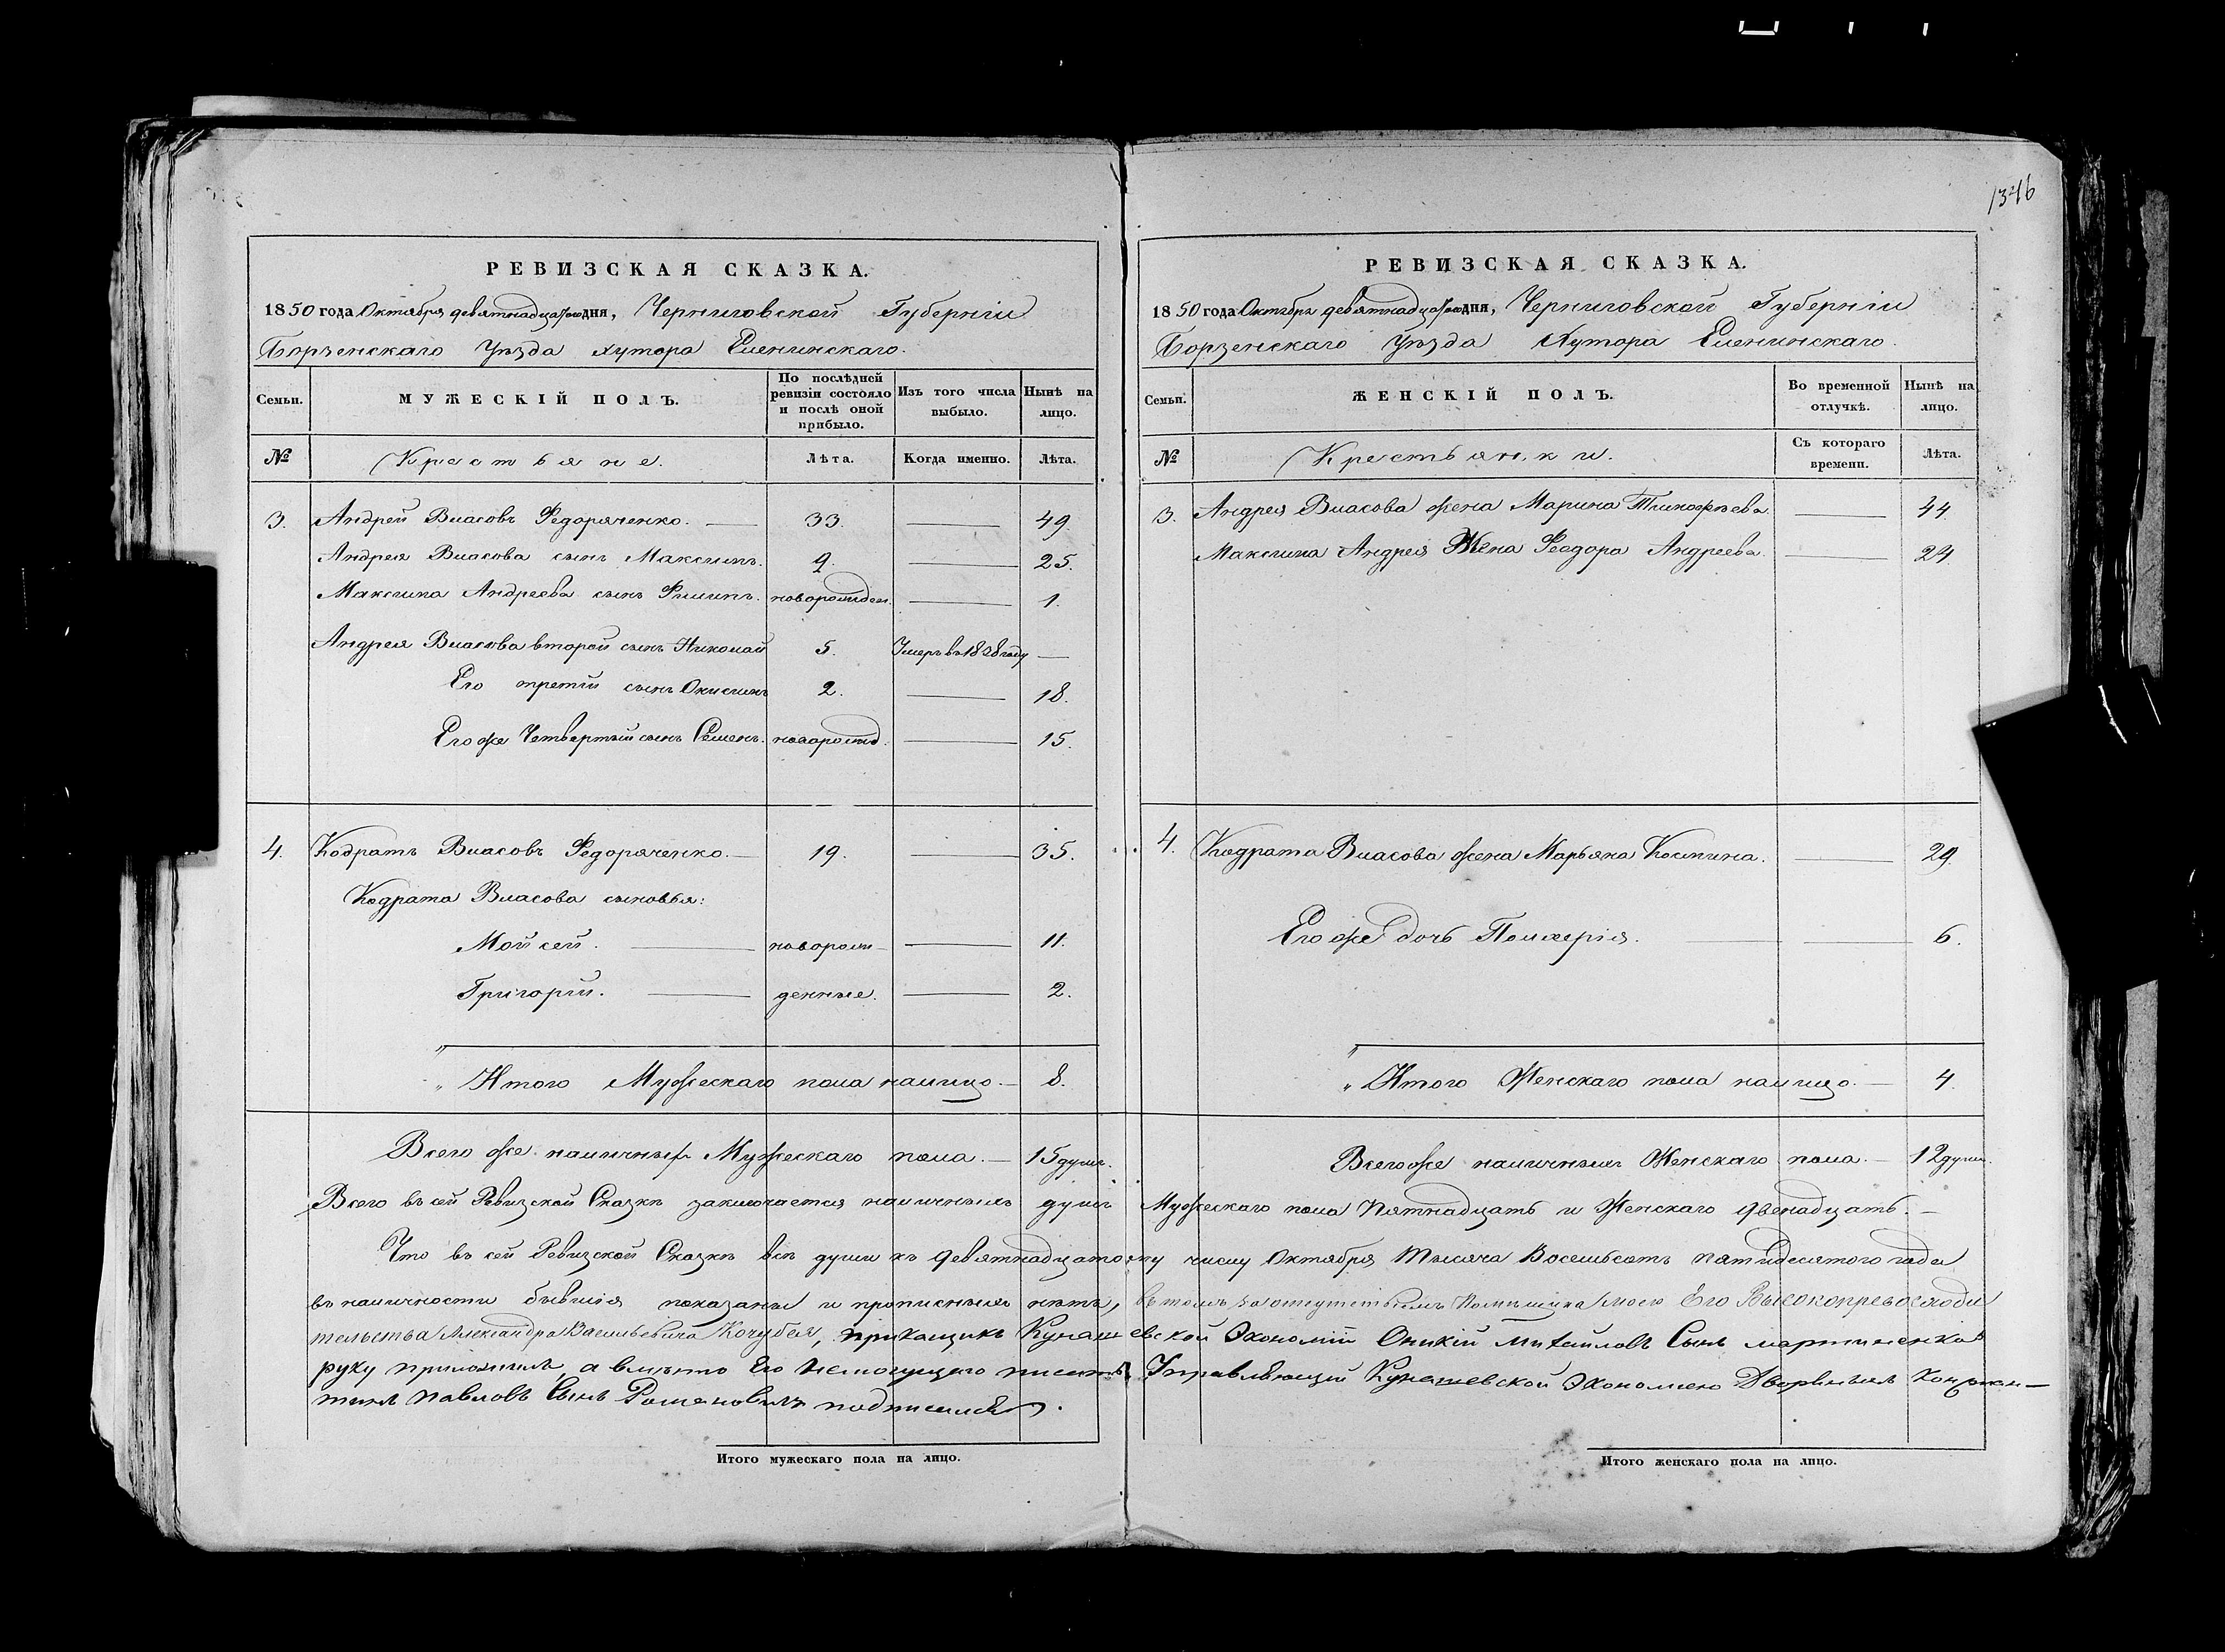 1346
РЕВИЗСКАЯ СКАЗКА.
1850 года Октября девятнадцатого дня, Черниговской Губерніи
Борзенскаго Уѣзда Хутора Еленинскаго.
Семьи. МУЖЕСКІЙ ПОЛЪ. По послѣдней ревизіи состояло и послѣ оной прибыло. Изъ того числа выбыло. Нынѣ на лицо.
№ Крестьяне. Лѣта. Когда именно. Лѣта.
3. Андрей Власовъ Федоряченко. 33. 49.
Андрея Власова сынъ Максимъ. 9. 25.
Максима Андреева сынъ Филипъ. новорожден. 1.
Андрея Власова второй сынъ Николай 5. Умеръ въ 1838 году
Его третій сынъ 2. 18.
Его же Четвертый сынъ Семенъ. новорожд. 15.
4. Кодратъ Власовъ Федоряченко. 19. 35.
Кодрата Власова сыновья:
Мойсей. новорож- 11.
Григорій. денные. 2.
„ Итого Мужескаго пола налицо. 8.
Всего же наличныхъ Мужескаго пола. 15 душъ.
РЕВИЗСКАЯ СКАЗКА.
1850 года Октября девятнадцатого дня, Черниговской Губерніи
Борзенскаго Уѣзда Хутора Еленинскаго.
Семьи. ЖЕНСКІЙ ПОЛЪ. Во временной отлучкѣ. Нынѣ на лицо.
№ Крестьянки. Съ котораго времени. Лѣта.
3. Андрея Власова жена Марина Тимофѣева. 44.
Максима Андрея Жена Феодора Андреева. 24.
4. Кодрата Власова жена Марьяна Космина. 29.
Его же дочь Полихерія. 6.
„ Итого Женскаго пола налицо. 4.
Всего же наличныхъ Женскаго пола. 12 душъ.
Всего въ сей Ревизской Сказкѣ заключается наличныхъ душъ Мужескаго пола Пятнадцать и Женскаго двенадцать.
Что въ сей Ревизской Сказкѣ всѣ души къ девятнадцатому числу Октября Тысяча Восемьсотъ пятидесятого года
въ наличности бывшія показаны и прописныхъ нѣтъ, въ томъ за отсутствіемъ Помѣщика моего Его Высокопревосходи
тельства Александра Васильевича Кочубея, прикащикъ Кунашевской Экономіи Оникій Михайловъ Сынъ мартиненко
руку приложилъ, а вмѣсто Его немогущаго писать, Управляющій Кунашевской Экономіею Дворянинъ Констан-
тинъ Павловъ Сынъ Романовичъ подписался.
Итого мужескаго пола на лицо.
Итого женскаго пола на лицо.